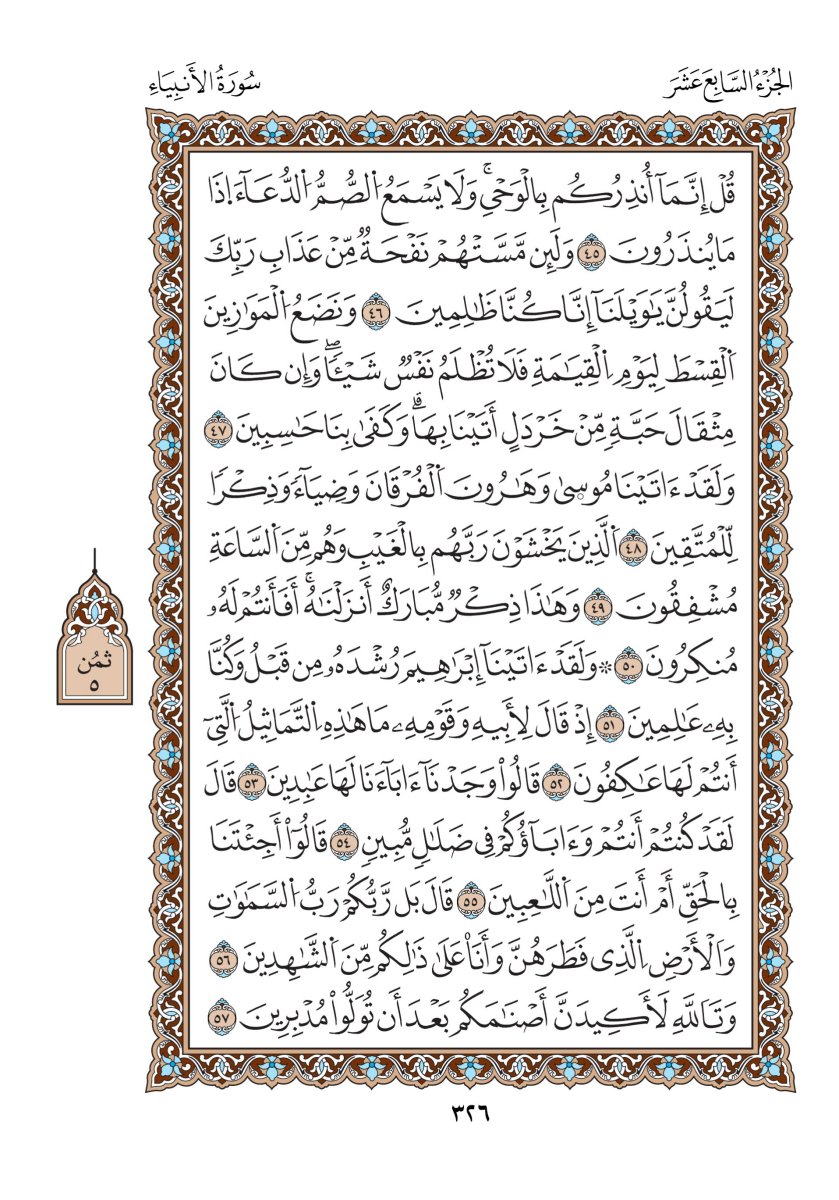 الجُزْءُ السَّابِعَ عَشَرَ
سُورَةُ الأَنبِيَاءِ
قُلۡ إِنَّمَآ أُنذِرُكُم بِالۡوَحۡيِۚ وَلَا يَسۡمَعُ الصُّمُّ الدُّعَآءَ اِذَا
مَا يُنذَرُونَ ٤٥ وَلَئِن مَّسَّتۡهُمۡ نَفۡحَةٞ مِّنۡ عَذَابِ رَبِّكَ
لَيَقُولُنَّ يَٰوَيۡلَنَآ إِنَّا كُنَّا ظَٰلِمِينَ ٤٦ وَنَضَعُ الۡمَوَٰزِينَ
اَلۡقِسۡطَ لِيَوۡمِ اِلۡقِيَٰمَةِ فَلَا تُظۡلَمُ نَفۡسٞ شَيۡـٔٗاۖ وَإِن كَانَ
مِثۡقَالَ حَبَّةٖ مِّنۡ خَرۡدَلٍ أَتَيۡنَا بِهَاۗ وَكَفَىٰ بِنَا حَٰسِبِينَ ٤٧
وَلَقَدۡ ءَاتَيۡنَا مُوسىٰ وَهَٰرُونَ اَلۡفُرۡقَانَ وَضِيَآءٗ وَذِكۡرٗا
لِّلۡمُتَّقِينَ ٤٨ اَلَّذِينَ يَخۡشَوۡنَ رَبَّهُم بِالۡغَيۡبِ وَهُم مِّنَ اَلسَّاعَةِ
مُشۡفِقُونَ ٤٩ وَهَٰذَا ذِكۡرٞ مُّبَارَكٌ أَنزَلۡنَٰهُۚ أَفَأَنتُمۡ لَهُۥ
مُنكِرُونَ ٥٠ ۞ وَلَقَدۡ ءَاتَيۡنَآ إِبۡرَٰهِيمَ رُشۡدَهُۥ مِن قَبۡلُ وَكُنَّا
بِهِۦ عَٰلِمِينَ ٥١ إِذۡ قَالَ لِأَبِيهِ وَقَوۡمِهِۦ مَا هَٰذِهِ اِلتَّمَاثِيلُ اُلَّتِيٓ
أَنتُمۡ لَهَا عَٰكِفُونَ ٥٢ قَالُواْ وَجَدۡنَآ ءَابَآءَنَا لَهَا عَٰبِدِينَ ٥٣ قَالَ
لَقَدۡ كُنتُمۡ أَنتُمۡ وَءَابَآؤُكُمۡ فِي ضَلَٰلٖ مُّبِينٖ ٥٤ قَالُوٓاْ أَجِئۡتَنَا
بِالۡحَقِّ أَمۡ أَنتَ مِنَ اَللَّٰعِبِينَ ٥٥ قَالَ بَل رَّبُّكُمۡ رَبُّ السَّمَٰوَٰتِ
وَالۡأَرۡضِ اِلَّذِي فَطَرَهُنَّ وَأَنَا۠ عَلَىٰ ذَٰلِكُم مِّنَ اَلشَّٰهِدِينَ ٥٦
وَتَاللَّهِ لَأَكِيدَنَّ أَصۡنَٰمَكُم بَعۡدَ أَن تُوَلُّواْ مُدۡبِرِينَ ٥٧
ثمُن
٥
٣٢٦